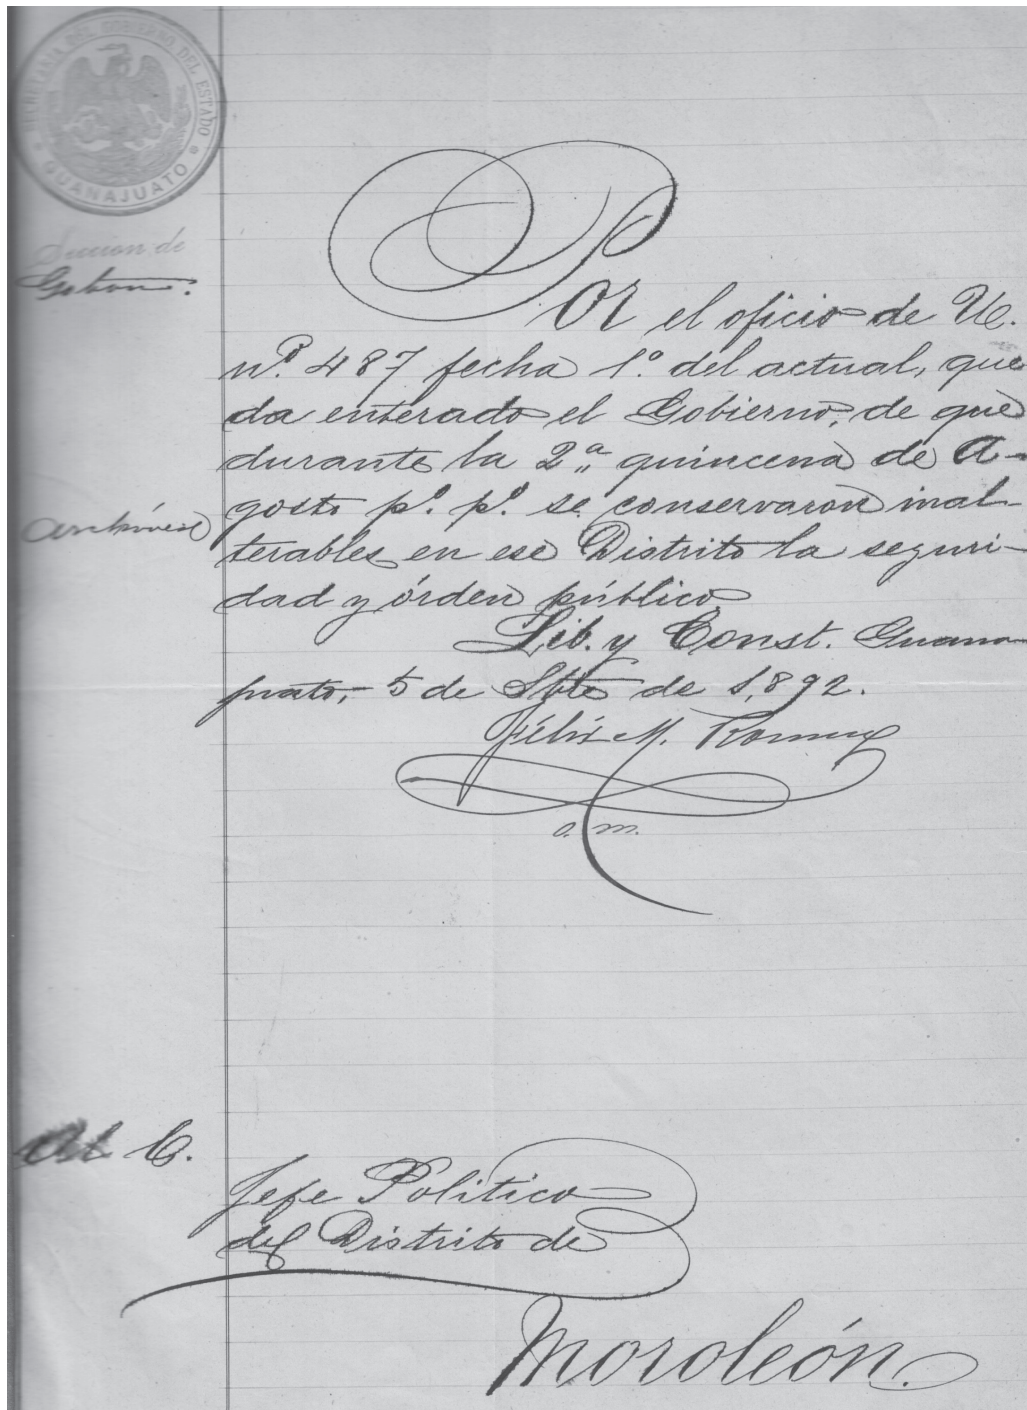 SECRETARIA DEL GOBIERNO DEL ESTADO
GUANAJUATO
Seccion de
Gobon.
Por el oficio de U.
nº. 487 fecha 1º. del actual, que
da enterado el Gobierno, de que
durante la 2ª. quincena de A-
gosto pº. pº. se conservaron inal-
terables en ese Distrito la seguri-
dad y órden público
Archívese
Lib. y Const. Guana
juato, 5 de Sbte de 1,892.
Félix M. Romero
o. m.
Al C.
Jefe Politico
del Distrito de
Moroleón.